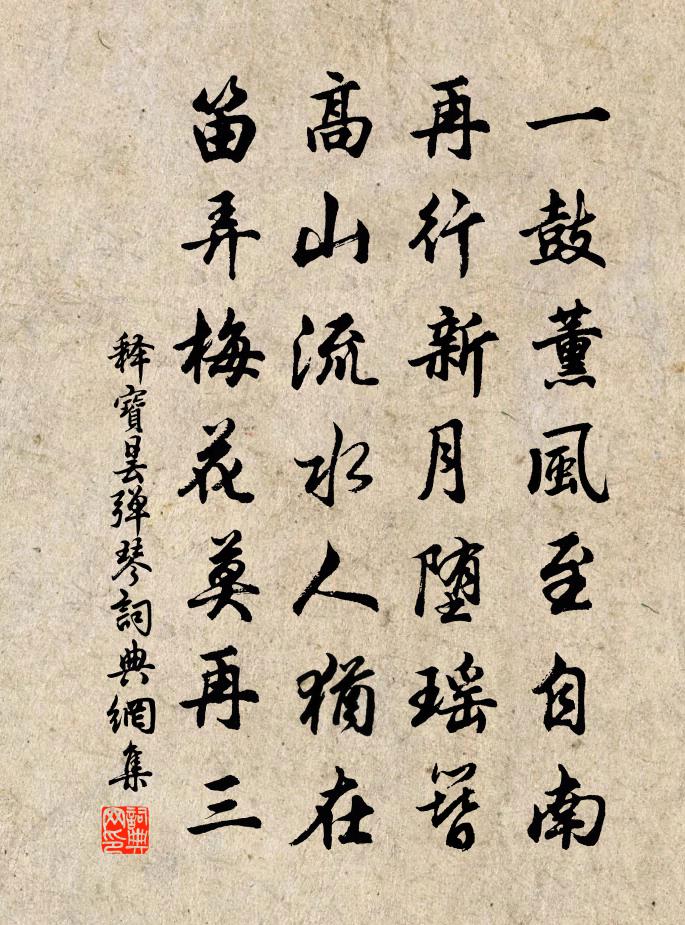 一鼓薰風至自南
再行新月堕瑶簪
高山流水人猶在
笛弄梅花莫再三
释寶昙弹琴詞典網集
詞典网印